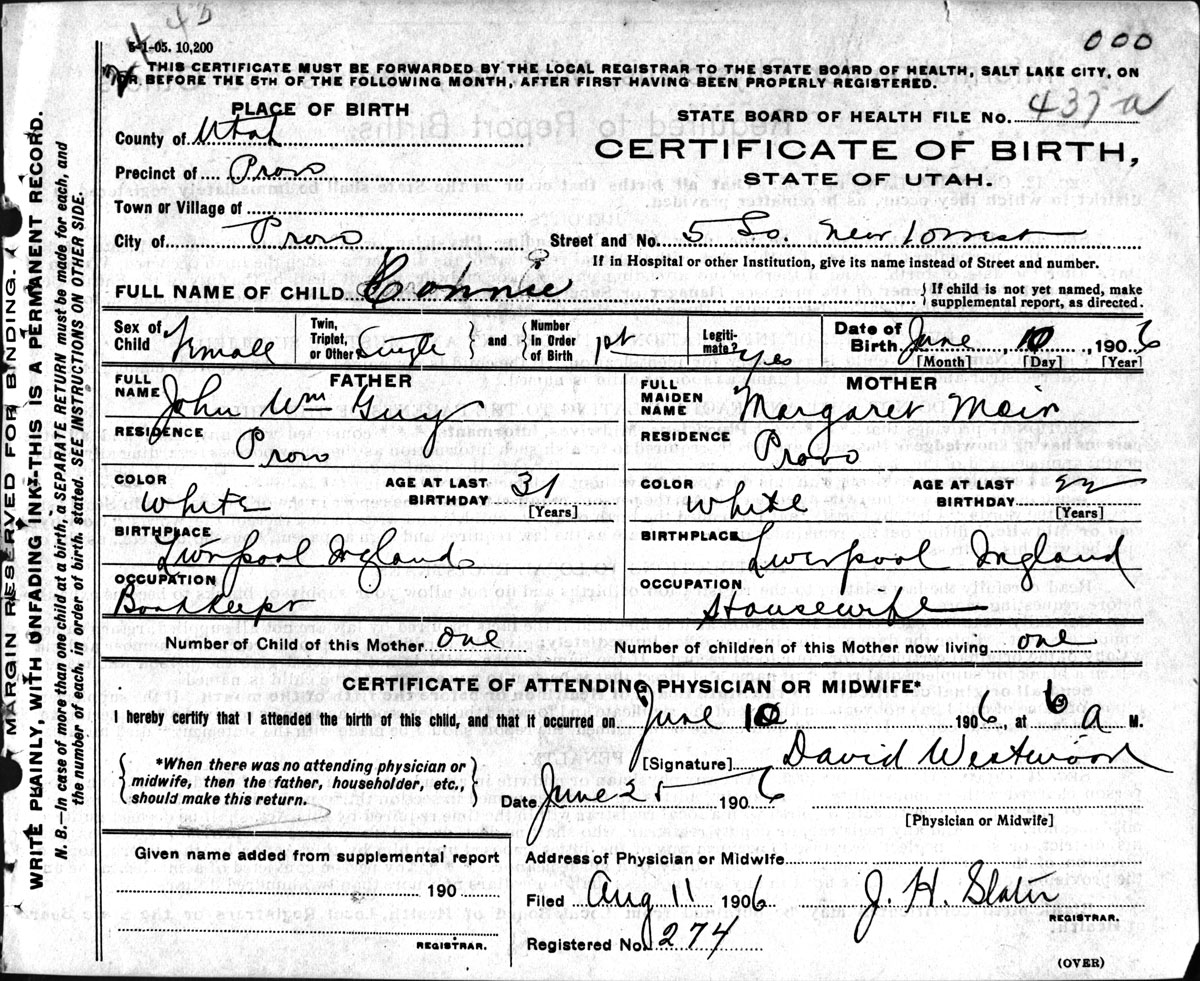 5-1-05. 10,200
000
THIS CERTIFICATE MUST BE FORWARDED BY THE LOCAL REGISTRAR TO THE STATE BOARD OF HEALTH, SALT LAKE CITY, ON
OR BEFORE THE 5TH OF THE FOLLOWING MONTH, AFTER FIRST HAVING BEEN PROPERLY REGISTERED.
PLACE OF BIRTH
STATE BOARD OF HEALTH FILE NO. 437-a
County of Utah
CERTIFICATE OF BIRTH,
Precinct of Provo
STATE OF UTAH.
Town or Village of
City of Provo Street and No. 5 So.
If in Hospital or other Institution, give its name instead of Street and number.
FULL NAME OF CHILD Connie { If child is not yet named, make
supplemental report, as directed.
Sex of Child Female Twin, Triplet, or Other Single } and { Number in Order of Birth 1st Legitimate? Yes Date of Birth June 10, 1906
[Month] [Day] [Year]
FATHER
FULL NAME John Wm Guy
RESIDENCE Provo
COLOR White AGE AT LAST BIRTHDAY 31 [Years]
BIRTHPLACE Liverpool Ingland
OCCUPATION Bookkeeper
MOTHER
FULL MAIDEN NAME Margaret Meir
RESIDENCE Provo
COLOR White AGE AT LAST BIRTHDAY 22 [Years]
BIRTHPLACE Liverpool Ingland
OCCUPATION Housewife
Number of Child of this Mother one Number of children of this Mother now living one
CERTIFICATE OF ATTENDING PHYSICIAN OR MIDWIFE*
I hereby certify that I attended the birth of this child, and that it occurred on June 10 1906, at 6 a M.
{ *When there was no attending physician or
midwife, then the father, householder, etc.,
should make this return. }
[Signature] David Westwood
Date June 25 1906
[Physician or Midwife]
Given name added from supplemental report
190
REGISTRAR.
Address of Physician or Midwife
Filed Aug 11 1906 J. H. Slater
REGISTRAR.
Registered No. 274
(OVER)
MARGIN RESERVED FOR BINDING.
WRITE PLAINLY, WITH UNFADING INK--THIS IS A PERMANENT RECORD.
N. B.—In case of more than one child at a birth, a SEPARATE RETURN must be made for each, and
the number of each, in order of birth, stated. SEE INSTRUCTIONS ON OTHER SIDE.